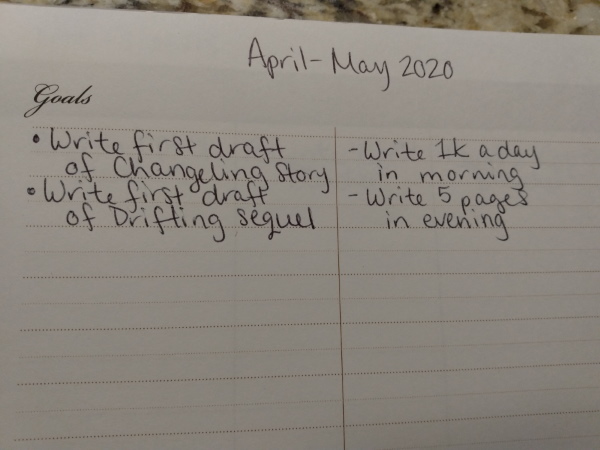 April-May 2020
Goals
• Write first draft
of Changeling Story
• Write first draft
of Drifting sequel
- Write 1k a day
in morning
- Write 5 pages
in evening